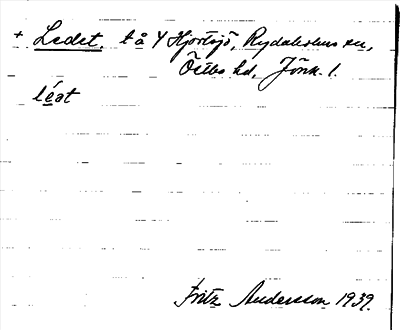 + Ledet, t å Y Hjortsjö, Rydaholms sn,
Östbo hd, Jönk. l.
léat
Fritz Andersson 1939.